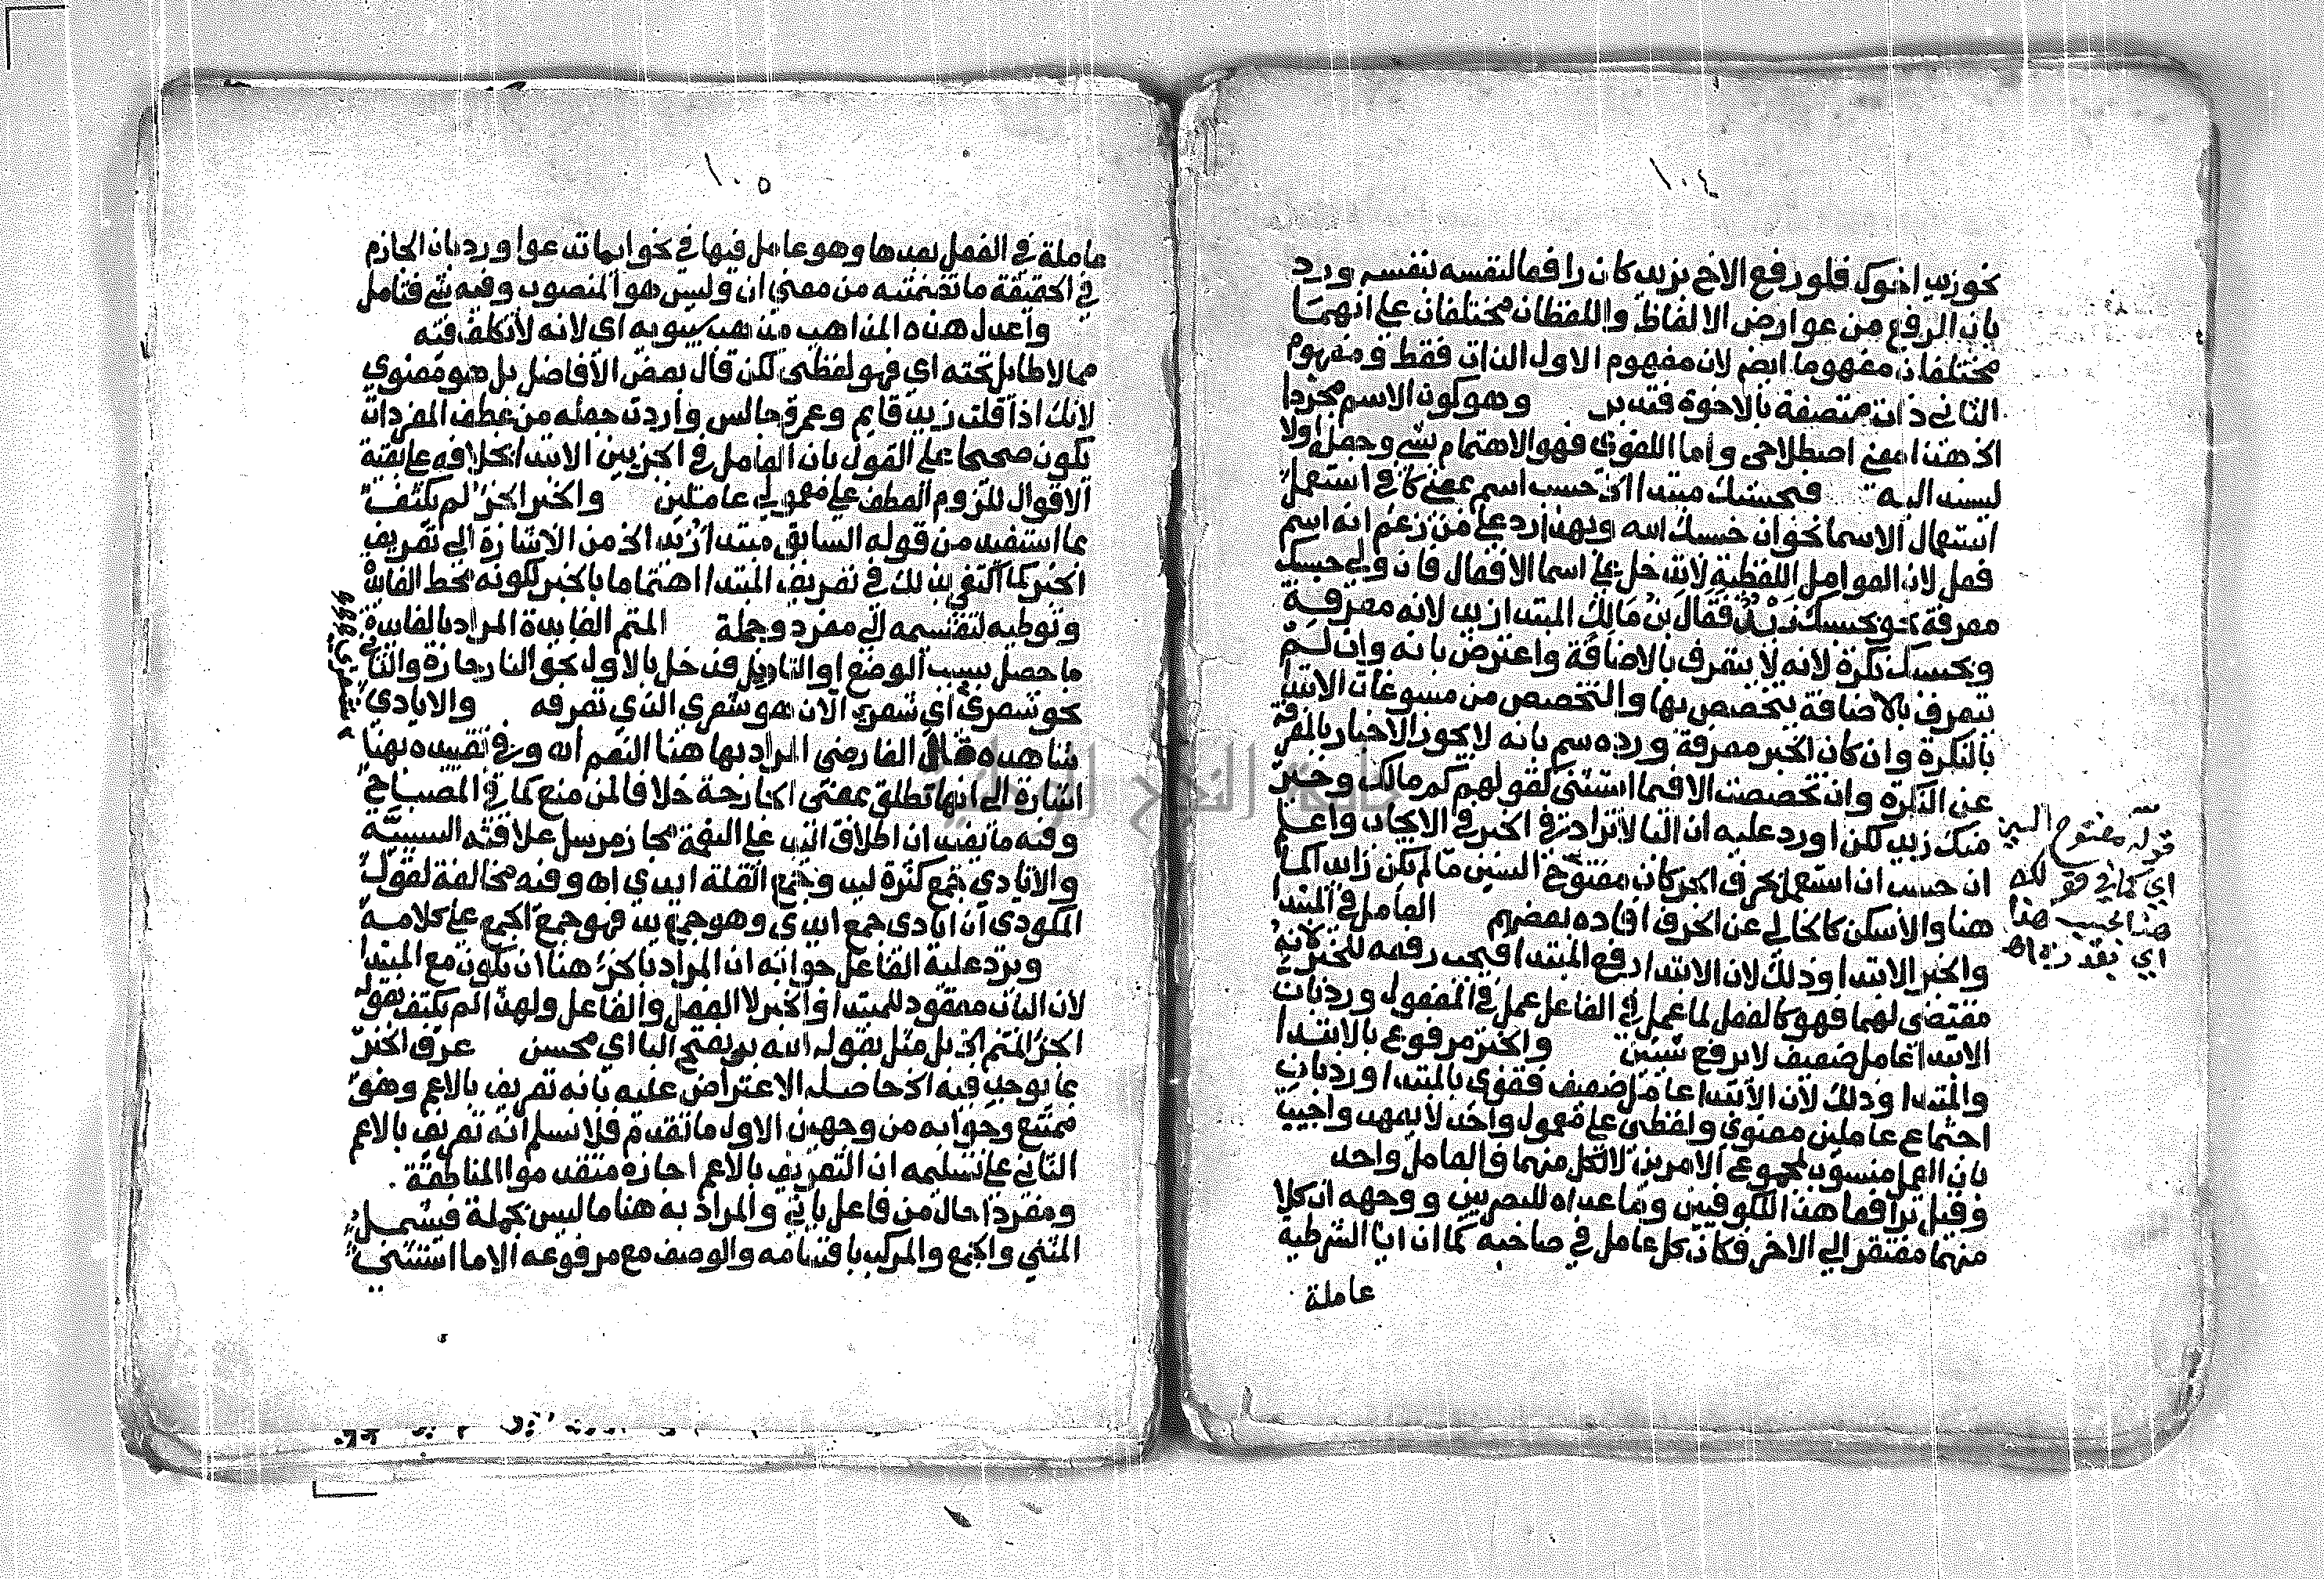 ١٠٤
نحو زيد اخوك فلو رفع الاخ بزيد كان رافعا لنفسه بنفسه ورد
بان الرفع من عوارض الالفاظ واللفظان مختلفان على انهما
مختلفان مفهوما ايض لان مفهوم الاول الذات فقط ومفهوم
الثاني ذات متصفة بالاخوة فتدبر وهو كون الاسم مجردا
الخ هذا معنى اصطلاحي واما اللغوي فهو الاهتمام بشي وجعله اولا
ليسند اليه فبحسبك مبتدا الخ حسب اسم بمعنى كاف استعمل
استعمال الاسما نحو فان حسبك الله وبهذا رد على من زعم انه اسم
فعل لان العوامل اللفظية لا تدخل على اسما الافعال فان ولي حسبك
معرفة نحو بحسبك زيد فقال بن مالك المبتدا زيد لانه معرفة
وبحسبك نكرة لانه لا يتعرف بالاضافة واعترض بانه وان لم
يتعرف بالاضافة يتخصص بها والتخصص من مسوغات الابتدا
بالنكرة وان كان الخبر معرفة ورده سم بانه لا يجوز الاخبار بالمعرفة
عن النكرة وان تخصصت الا فيما استثنى كقولهم كم مالك وخير
منك زيد لكن اورد عليه ان البا لا تزاد في الخبر في الايجاب واعلم
ان حسب ان استعمل بحرف الجر كان مفتوح السين ما لم يكن زايدا كما
هنا والا سكن كالخالي عن الحرف افاده بعضهم العامل في المبتدا
والخبر الابتدا وذلك لان الابتدا رفع المبتدا فيجب رفعه للخبر لانه
مقتضى لهما فهو كالفعل لما عمل في الفاعل عمل في المفعول ورد بان
الابتدا عامل ضعيف لا يرفع شيئين والخبر مرفوع بالابتدا
والمبتدا وذلك لان الابتدا عامل ضعيف فقوي بالمبتدا ورد بان
اجتماع عاملين معنوي ولفظي على معمول واحد لا يعهد واجيب
بان العمل منسوب لمجموع الامرين لا لكل منهما فالعامل واحد
وقيل ترافعا هذا للكوفيين وما عداه للبصريين ووجهه ان كلا
منهما مفتقر الى الاخر فكان كل عامل في صاحبه كما ان ايا الشرطية
عاملة
قوله مفتوح السين
اي كما في قولك
هذا بحسب هذا
اي بقدره اه
١٠٥
عاملة في الفعل بعدها وهو عامل فيها في نحو ايما تدعوا ورد بان الجازم
في الحقيقة ما تضمنته من معنى ان وليس هو المنصوب وفيه شي فتامل
واعدل هذه المذاهب مذهب سيبويه اي لانه لا تكلف فيه
مما لا طايل تحته اي فهو لفظي لكن قال بعض الافاضل بل هو معنوي
لانك اذا قلت زيد قايم وعمرو جالس واردت جعله من عطف المفردات
يكون صحيحا على القول بان العامل في الجزيين الابتدا بخلافه على بقية
الاقوال للزوم العطف على معمولي عاملين والخبر الجزء لم يكتف
بما استفيد من قوله السابق مبتدا زيد الخ من الاشارة الى تعريف
الخبر كما اكتفى بذلك في تعريف المبتدا اهتماما بالخبر لكونه محط الفايدة
وتوطيه لتقسيمه الى مفرد وجملة المتم الفايدة المراد بالفايدة
ما حصل بسبب الوضع او التاويل فدخل بالاول نحو النار حارة والثاني
نحو شعري اي شعري الان هو شعري الذي تعرفه والايادي
شاهده قال الفارضي المراد بها هنا النعم اه وفي تفسيره بهذا
اشارة الى انها تطلق بمعنى الجارحة خلافا لمن منع كما في المصباح
وفيه ما يفيد ان اطلاق اليد على النعمة مجاز مرسل علاقته السببية
والايادي جمع كثرة ليد وجمع القلة ايدي اه وفيه مخالفة لقول
المكودي ان ايادي جمع ايدي وهو جمع يد فهو جمع الجمع على كلامه
ويرد عليه الفاعل جوابه ان المراد بالجزء هنا ان يكون مع المبتدا
لان الباب معقود للمبتدا والخبر لا الفعل والفاعل ولهذا لم يكتف بقوله
الجزء المتم الخ بل مثل بقوله الله بر بفتح البا اي محسن عرف الخبر
بما يوجد فيه الخ حاصله الاعتراض عليه بانه تعريف بالاعم وهو
ممتنع وجوابه من وجهين الاول ما تقدم فلا نسلم انه تعريف بالاعم
الثاني على تسليمه ان التعريف بالاعم اجازه متقدموا المناطقة
ومفردا حال من فاعل ياتي والمراد به هنا ما ليس بجملة فيشمل
المثنى والجمع والمركب باقسامه والوصف مع مرفوعه الا ما استثني